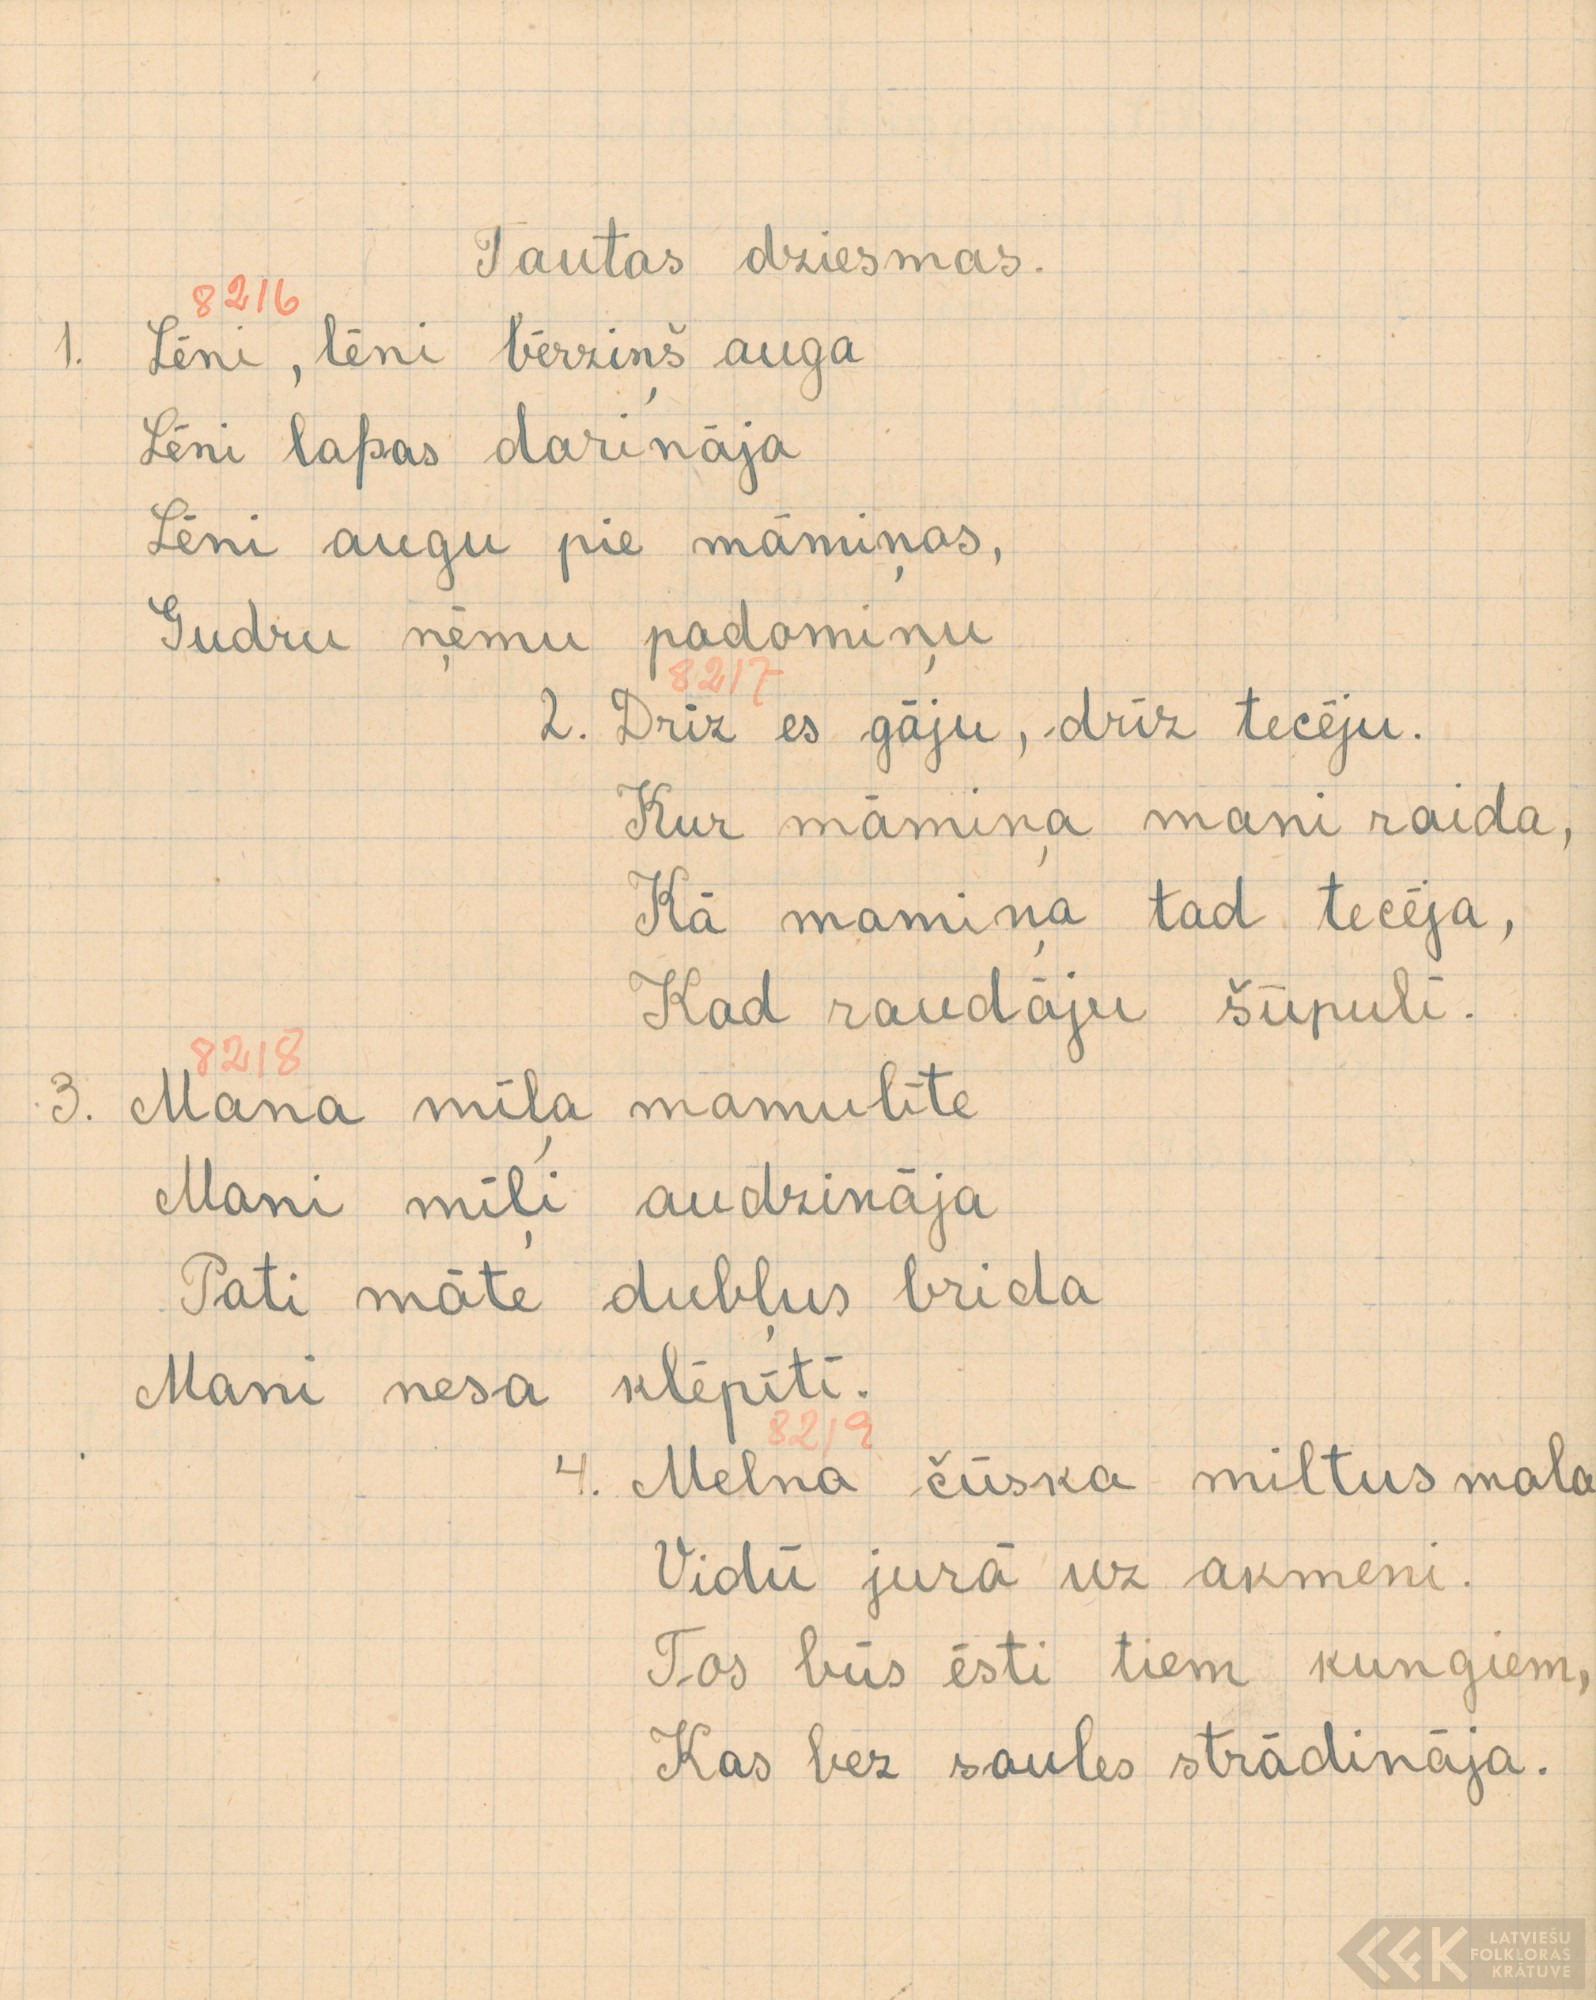 Tautas dziesmas.
8216
1. Lēni, lēni bērziņš auga
Lēni lapas darināja
Lēni augu pie māmiņas,
Gudru ņēmu padomiņu
8217
2. Drīz es gāju, drīz tecēju.
Kur māmiņa mani raida,
Kā mamiņa tad tecēja,
Kad raudāju šūpulī.
8218
3. Mana mīļa mamulīte
Mani mīļi audzināja
Pati māte dubļus brida
Mani nesa klēpītī.
8219
4. Melna čūska miltus mala
Vidū jurā uz akmeni.
Tos būs ēsti tiem kungiem,
Kas bez saules strādināja.
LATVIEŠU
FOLKLORAS
KRĀTUVE